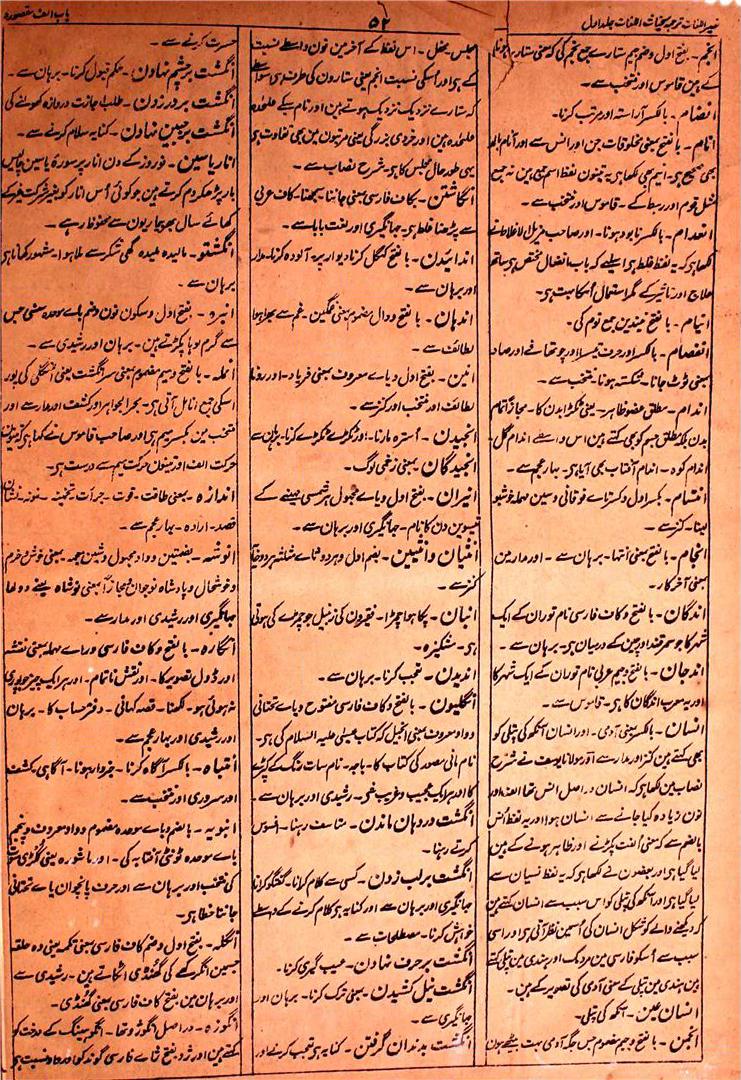 باب الف مقصورہ
۵۲
نصیر اللغات ترجمہ غیاث اللغات جلد اول
انجم - بفتح اول و ضم جیم ستارے جمع نجم کی کہ معنی ستارہ
کے ہین قاموس اور منتخب سے -
انضمام - بالکسر آراستہ اور مرتب کرنا -
انام - بالفتح بمعنی مخلوقات جن اور انس سے اور آنام بالمد
بھی صحیح ہی - اسم جمع لکھا ہی یہ تینون لفظ اسم جمع ہین نہ جمع
مثل قوم اور ربط کے - قاموس اور منتخب سے -
انعدام - بالکسر نابود ہونا - اور صاحب مزیل الاغلاط نے
لکھا ہی کہ یہ لفظ غلط ہی اسلیے کہ باب انفعال مختص ہی ساتھ
علاج اور تاثیر کے مگر استعمال اسکا بہت ہی -
انیام - بالفتح نیندین جمع نوم کی -
انفصام - بالکسر اور حرف تیسرا اور چوتھا فے اور صاد
بمعنی ٹوٹ جانا - شکستہ ہونا - منتخب سے -
اندام - مطلق عضو ظاہر - یعنی ٹکڑا بدن کا - مجازاً تمام
بدن بلکہ مطلق جسم کو بھی کہتے ہین اس واسطے اندام گل -
اندام کوہ - اندام آفتاب بھی آیا ہی - بہار عجم سے -
انتسام - بکسر اول و کسر تاے فوقانی و سین مہملہ خوشبو
لینا - کنز سے -
انجام - بالفتح بمعنی انتہا - برہان سے - اور مدار مین
بمعنی آخر کار -
اندگان - بالفتح و کاف فارسی نام توران کے ایک
شہر کا جو سمرقند اور چین کے درمیان ہی - برہان سے -
اندجان - بالفتح و جیم عربی نام توران کے ایک شہر کا
اور یہ معرب اندگان کا ہی - قاموس سے -
انسان - بالکسر بمعنی آدمی - اور انسان آنکھ کی پتلی کو
بھی کہتے ہین کنز اور مدار سے اور مولانا یوسف نے شرح
نصاب مین لکھا ہی کہ انسان در اصل انس تھا الف اور
نون زیادہ کیا جانے سے انسان ہوا اور یہ لفظ اُنس
بالضم سے کہ معنی اُلفت پکڑنے اور ظاہر ہونے کے ہین
لیا گیا ہی اور بعضون نے لکھا ہی کہ یہ لفظ نسیان سے
لیا گیا ہی اور آنکھ کی پتلی کو اس سبب سے انسان کہتے ہین
کہ دیکھنے والے کو شکل انسان کی اُسمین نظر آتی ہی اور اسی
سبب سے اُسکو فارسی مین مردمک اور ہندی مین پتلی کہتے
ہین ہندی مین پتلی کے معنی آدمی کی تصویر کے ہین -
انسان عین - آنکھ کی پتلی -
انجمن - بالفتح و جیم مضموم جس جگہ آدمی بہت بیٹھے ہون
مجلس محفل - اس لفظ کے آخر مین نون واسطے نسبت
کے ہی اور اُسکی نسبت انجم یعنی ستارون کی طرف ہی اسواسطے
کہ ستارے نزدیک نزدیک ہوتے ہین اور نام سبکے علیحدہ
علیحدہ ہین اور خردی بزرگی یعنی مرتبون مین بھی تفاوت ہی
یہی طور حال مجلس کا ہی - شرح نصاب سے -
انگاشتن - بکاف فارسی بمعنی جاننا - سمجھنا - کاف عربی
سے پڑھنا غلط ہی - جہانگیری اور لغت بابا سے -
اندائیدن - بالفتح کہگل کرنا دیوار پر - آلودہ کرنا - مدار
اور برہان سے -
اندہان - بالفتح و دال مضموم بمعنی غمگین - غم سے بھرا ہوا
لطائف سے -
انین - بفتح اول و یاے معروف بمعنی فریاد - اور رونا
لطائف اور منتخب اور کنز سے -
انجیدن - اُسترہ مارنا - اور ٹکڑے ٹکڑے کرنا - برہان سے
انجیدگان - بمعنی زخمی لوگ -
انیران - بفتح اول و یاے مجہول ہر شمسی مہینے کے
تیسوین دن کا نام - جہانگیری اور برہان سے -
انثیان و انثیین - بضم اول و ہر دو ثاے مثلثہ ہر دو خایہ
کنز سے -
انبان - پکا ہوا چمڑا - فقیرون کی زنبیل جو چمڑے کی ہوتی
ہی - مشکیزہ -
اندیدن - تعجب کرنا - برہان سے -
انگلیون - بالفتح و کاف فارسی مفتوح و یاے تحتانی
و واو معروف بمعنی انجیل کہ کتاب عیسیٰ علیہ السلام کی ہی -
نام مانی مصور کی کتاب کا - باجہ - نام سات رنگ کے کپڑے
کا اور ہر ایک عجیب و غریب شی - رشیدی اور برہان سے -
انگشت در دہان ماندن - متاسف رہنا - افسوس
کرتے رہنا -
انگشت بر لب زدن - کسی سے کلام کرانا - گفتگو کرانا
جہانگیری اور برہان سے اور کنایہ ہی کلام کرنے کے واسطے
خواہش کرنا - مصطلحات سے -
انگشت بر حرف نہادن - عیب گیری کرنا -
انگشت نیل کشیدن - بمعنی ترک کرنا - برہان اور
جہانگیری سے -
انگشت بدندان گرفتن - کنایہ ہی تعجب کرنے اور
حسرت کرنے سے -
انگشت بر چشم نہادن - حکم قبول کرنا - برہان سے -
انگشت بر در زدن - طلب اجازت دروازہ کھولنے کی
انگشت بر جبین نہادن - کنایہ سلام کرنے سے -
انار یاسین - نوروز کے دن انار پر سورۂ یاسین چالیس
بار پڑھکر دم کرتے ہین جو کوئی اُس انار کو بغیر شرکت غیر کے
کھائے سال بھر بیماریون سے محفوظ رہے -
انگشتو - مالیدہ ملیدہ گھی شکر سے ملا ہوا - مشہور کھانا ہی
برہان سے -
انبرہ - بفتح اول و سکون نون و ضم باے موحدہ سنسی جس
سے گرم لوہا پکڑتے ہین - برہان اور رشیدی سے -
انملہ - بالفتح و میم مضموم بمعنی سر انگشت یعنی اُنگلی کی پور
اسکی جمع انامل آتی ہی - بحر الجواہر اور کشف اور مدار سے اور
منتخب مین بکسر میم ہی اور صاحب قاموس نے لکھا ہی کہ تینون
حرکت الف اور تینون حرکت میم سے درست ہی -
اندازہ - بمعنی طاقت - قوت - جرأت - تخمینہ - نمونہ - نشان
قصد - ارادہ - بہار عجم سے -
انوشہ - بضمتین و واو مجہول و شین معجمہ - بمعنی خوش خرم
و خوشحال و بادشاہ نوجوان و مجازاً بمعنی نوشاہ یعنے دولھا
جہانگیری اور رشیدی اور مدار سے -
انگارہ - بالفتح و کاف فارسی و راے مہملہ بمعنی نقشہ
اور ڈول تصویر کا - اور نقش ناتمام - اور ہر ایک چیز جو پوری
نہ ہوئی ہو - لکھنا - قصہ کہانی - دفتر حساب کا - برہان
اور رشیدی اور بہار عجم سے -
انتباہ - بالکسر آگاہ کرنا - خبردار ہونا - آگاہی - کشف
اور سروری اور منتخب سے -
انبوبہ - بالضم و باے موحدہ مضموم و واو معروف و پنجم
باے موحدہ ٹونٹی آفتابہ کی -
کی منتخب اور برہان سے اور حرف پانچوان یاے تحتانی
جاننا خطا ہی -
انگلہ - بفتح اول و ضم کاف فارسی بمعنی تکمہ یعنی وہ حلقہ
جسمین انگرکھے کی گھنڈی اٹکاتے ہین - رشیدی سے
اور برہان مین بفتح کاف فارسی بمعنی گھنڈی -
انگوزہ - در اصل انگوژد تھا - انگو ہینگ کے درخت کو
کہتے ہین اور ژد بفتح زاے فارسی گوند کو